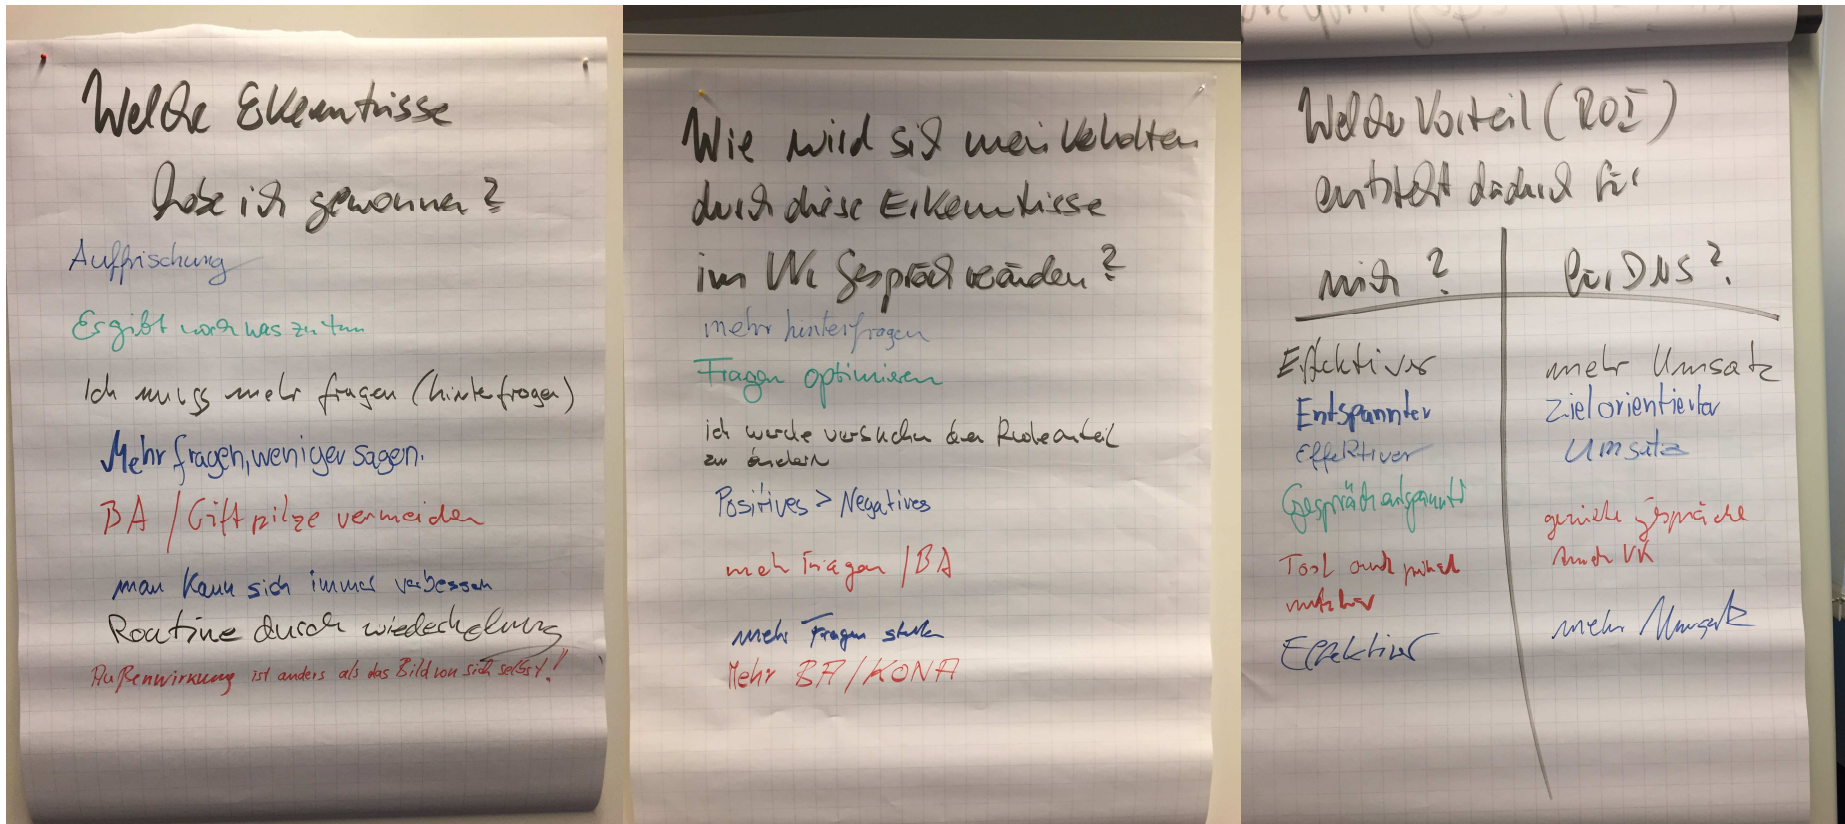 Welche Erkenntnisse
habe ich gewonnen?
Auffrischung
Es gibt noch was zu tun
Ich muss mehr fragen (hinterfragen)
Mehr fragen, weniger sagen.
BA / Giftpilze vermeiden
man kann sich immer verbessern
Routine durch wiederholung
Außenwirkung ist anders als das Bild von sich selbst!
Wie wird sich mein Verhalten
durch diese Erkenntnisse
im VK Gespräch verändern?
mehr hinterfragen
Fragen optimieren
ich werde versuchen den Redeanteil
zu ändern
Positives > Negatives
mehr Fragen / BA
mehr Fragen stellen
Mehr BA / KONA
Welcher Vorteil (ROI)
entsteht dadurch für
mich?
für DNS?
Effektiver
Entspannter
Effektiver
Gespräch entspannter
Tool auch privat
nutzbar
Effektiver
mehr Umsatz
Zielorientierter
Umsatz
gezielte Gespräche
VK
mehr Umsatz